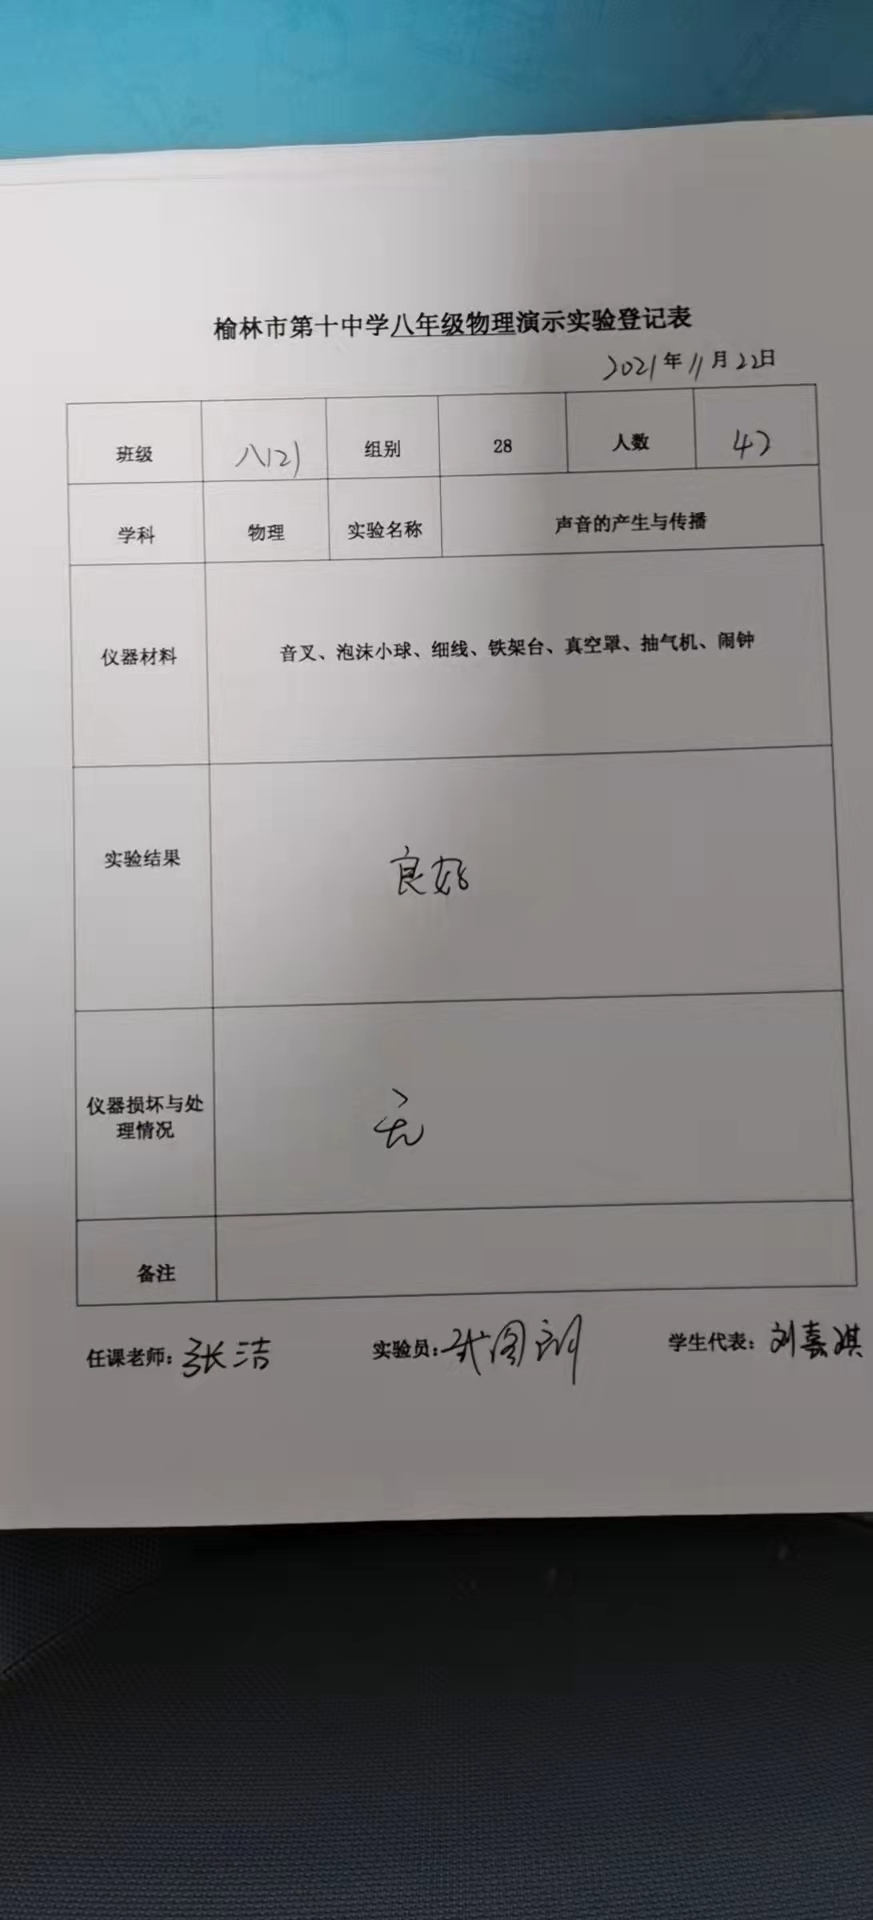 榆林市第十中学八年级物理演示实验登记表
2021年11月22日
班级 八(2) 组别 28 人数 42
学科 物理 实验名称 声音的产生与传播
仪器材料 音叉、泡沫小球、细线、铁架台、真空罩、抽气机、闹钟
实验结果 良好
仪器损坏与处
理情况 无
备注
任课老师：张洁 实验员： 学生代表：刘嘉淇